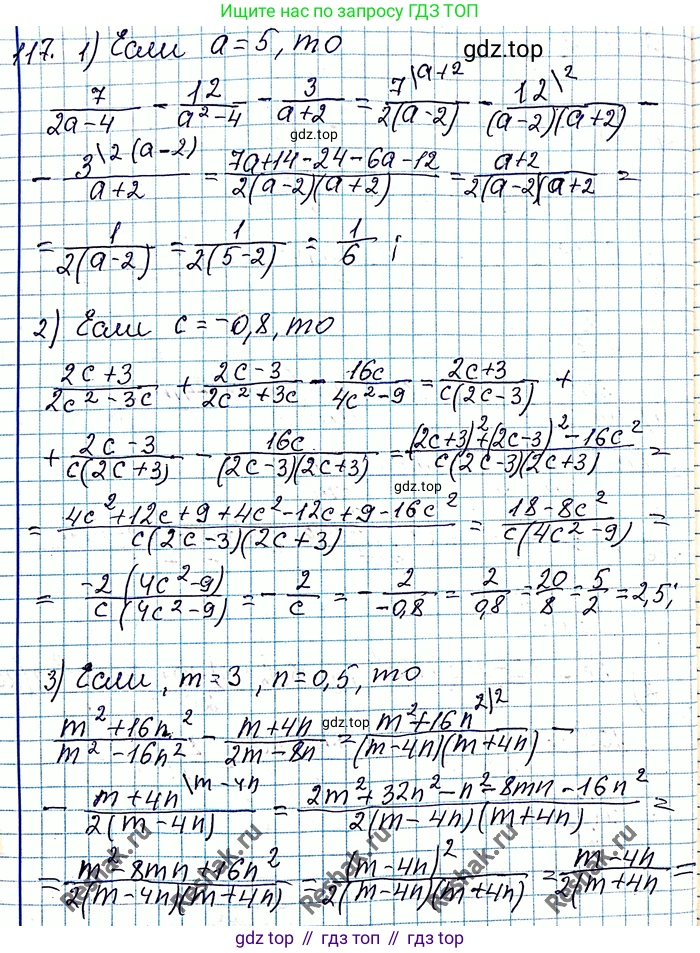 Ищите нас по запросу ГДЗ ТОП
117. 1) Если a = 5, то
gdz.top
7/(2a-4) - 12/(a²-4) - 3/(a+2) = 7\a+2/(2(a-2)) - 12\2/((a-2)(a+2)) -
gdz.top
- 3\2(a-2)/(a+2) = (7a+14-24-6a-12)/(2(a-2)(a+2)) = (a+2)/(2(a-2)(a+2 =
= 1/(2(a-2)) = 1/(2(5-2)) = 1/6 ;
2) Если c = -0,8, то
(2c+3)/(2c²-3c) + (2c-3)/(2c²+3c) - 16c/(4c²-9) = (2c+3)/(c(2c-3)) +
+ (2c-3)/(c(2c+3)) - 16c/((2c-3)(2c+3)) = ((2c+3)²+(2c-3)²-16c²)/(c(2c-3)(2c+3)) =
gdz.top
= (4c²+12c+9+4c²-12c+9-16c²)/(c(2c-3)(2c+3)) = (18-8c²)/(c(4c²-9)) =
= -2(4c²-9)/(c(4c²-9)) = -2/c = -2/-0,8 = 2/0,8 = 20/8 = 5/2 = 2,5;
3) Если, m = 3, n = 0,5, то
(m²+16n²)/(m²-16n²) - (m+4n)/(2m-8n) = (m²+16n²\2)/((m-4n)(m+4n)) -
gdz.top
- (m+4n\m-4n)/(2(m-4n)) = (2m²+32n²-n²-8mn-16n²)/(2(m-4n)(m+4n)) =
= (m²-8mn+16n²)/(2(m-4n)(m+4n)) = (m-4n)²/(2(m-4n)(m+4n)) = (m-4n)/(2(m+4n =
Reshak.ru
Reshak.ru
Reshak.ru
Reshak.ru
Reshak.ru
gdz top // гдз топ // gdz.top